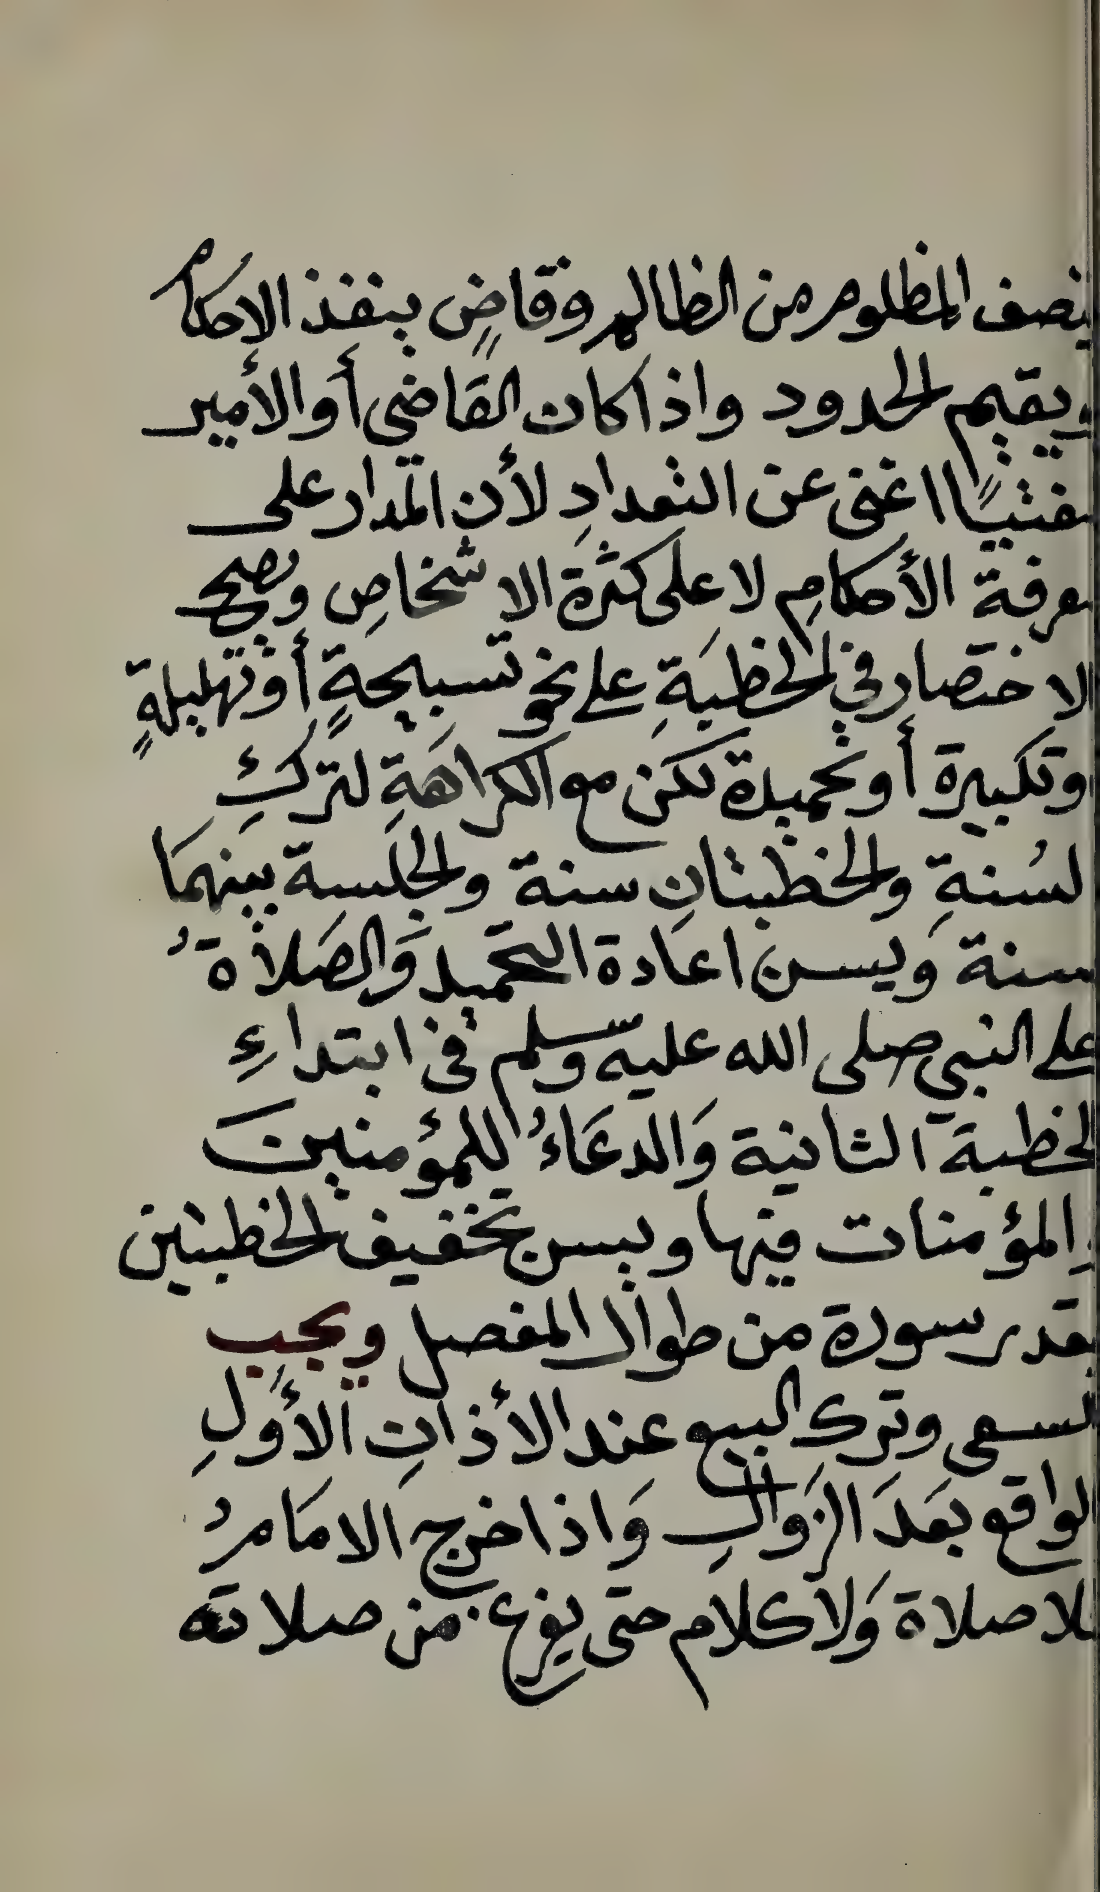 ينصف المظلوم من الظالم وقاضٍ ينفذ الاحكام
ويقيم الحدود واذا كان القاضي أو الأمير
مفتيًا اغنى عن التعدادِ لأن المدار على
معرفة الأحكامِ لا على كثرة الاشخاصِ ويصح
الاختصار في الخطبَةِ على نحو تسبيحةٍ أو تهليلةٍ
اوتكبيرة أو تحميدة لكن مع الكراهَةِ لتركِ
السُنةِ والخطبتانِ سنة والجلسة بينهمَا
سنة وَيسن اعَادة التحَميد وَالصَلاةُ
على النبي صلى الله عليه وسلم في ابتداءِ
الخطبة الثانية وَالدعَاءُ للمؤمنينَ
والمؤمنات فيها ويسن تخفيف الخطبتين
بقدر سورة من طوال المفصل ويجب
السعى وترك البيع عند الأذانِ الأَولِ
الواقع بعَدَ الزَوالِ وَاذا خرج الامَامُ
فلا صلاة وَلا كلام حتى يفرغ من صلاته